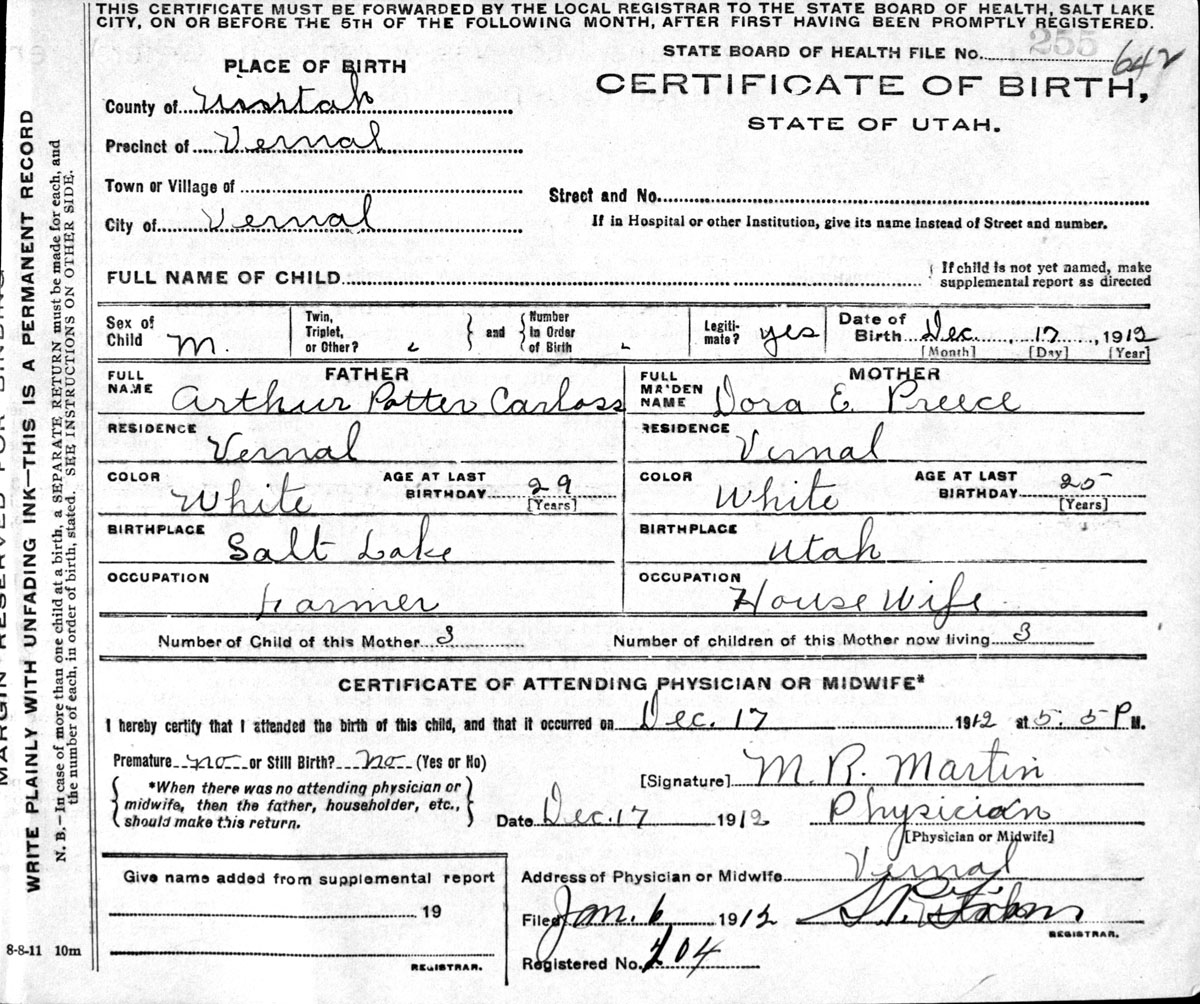 THIS CERTIFICATE MUST BE FORWARDED BY THE LOCAL REGISTRAR TO THE STATE BOARD OF HEALTH, SALT LAKE
CITY, ON OR BEFORE THE 5TH OF THE FOLLOWING MONTH, AFTER FIRST HAVING BEEN PROMPTLY REGISTERED.
STATE BOARD OF HEALTH FILE No. 255 642
PLACE OF BIRTH
CERTIFICATE OF BIRTH,
STATE OF UTAH.
County of Uintah
Precinct of Vernal
Town or Village of
Street and No.
City of Vernal
If in Hospital or other Institution, give its name instead of Street and number.
FULL NAME OF CHILD
If child is not yet named, make
supplemental report as directed
Sex of
Child M.
Twin,
Triplet,
or Other?
and
Number
in Order
of Birth
Legiti-
mate? yes
Date of
Birth Dec. 17, 1912
[Month] [Day] [Year]
FATHER
FULL
NAME Arthur Potter Carloss
RESIDENCE
Vernal
COLOR White
AGE AT LAST
BIRTHDAY 29
[Years]
BIRTHPLACE
Salt Lake
OCCUPATION
Farmer
MOTHER
FULL
MAIDEN
NAME Dora E. Preece
RESIDENCE
Vernal
COLOR White
AGE AT LAST
BIRTHDAY 25
[Years]
BIRTHPLACE
Utah
OCCUPATION
House Wife
Number of Child of this Mother 3
Number of children of this Mother now living 3
CERTIFICATE OF ATTENDING PHYSICIAN OR MIDWIFE*
I hereby certify that I attended the birth of this child, and that it occurred on Dec. 17 1912 at 5.5 P M.
Premature no or Still Birth? no (Yes or No)
*When there was no attending physician or
midwife, then the father, householder, etc.,
should make this return.
[Signature] M. R. Martin
Date Dec. 17 1912
Physician
[Physician or Midwife]
Give name added from supplemental report
19
REGISTRAR.
Address of Physician or Midwife Vernal
Filed Jan. 6 1912
REGISTRAR.
Registered No. 204
8-8-11 10m
MARGIN RESERVED FOR BINDING
WRITE PLAINLY WITH UNFADING INK—THIS IS A PERMANENT RECORD
N. B.—In case of more than one child at a birth, a SEPARATE RETURN must be made for each, and
the number of each, in order of birth, stated. SEE INSTRUCTIONS ON OTHER SIDE.